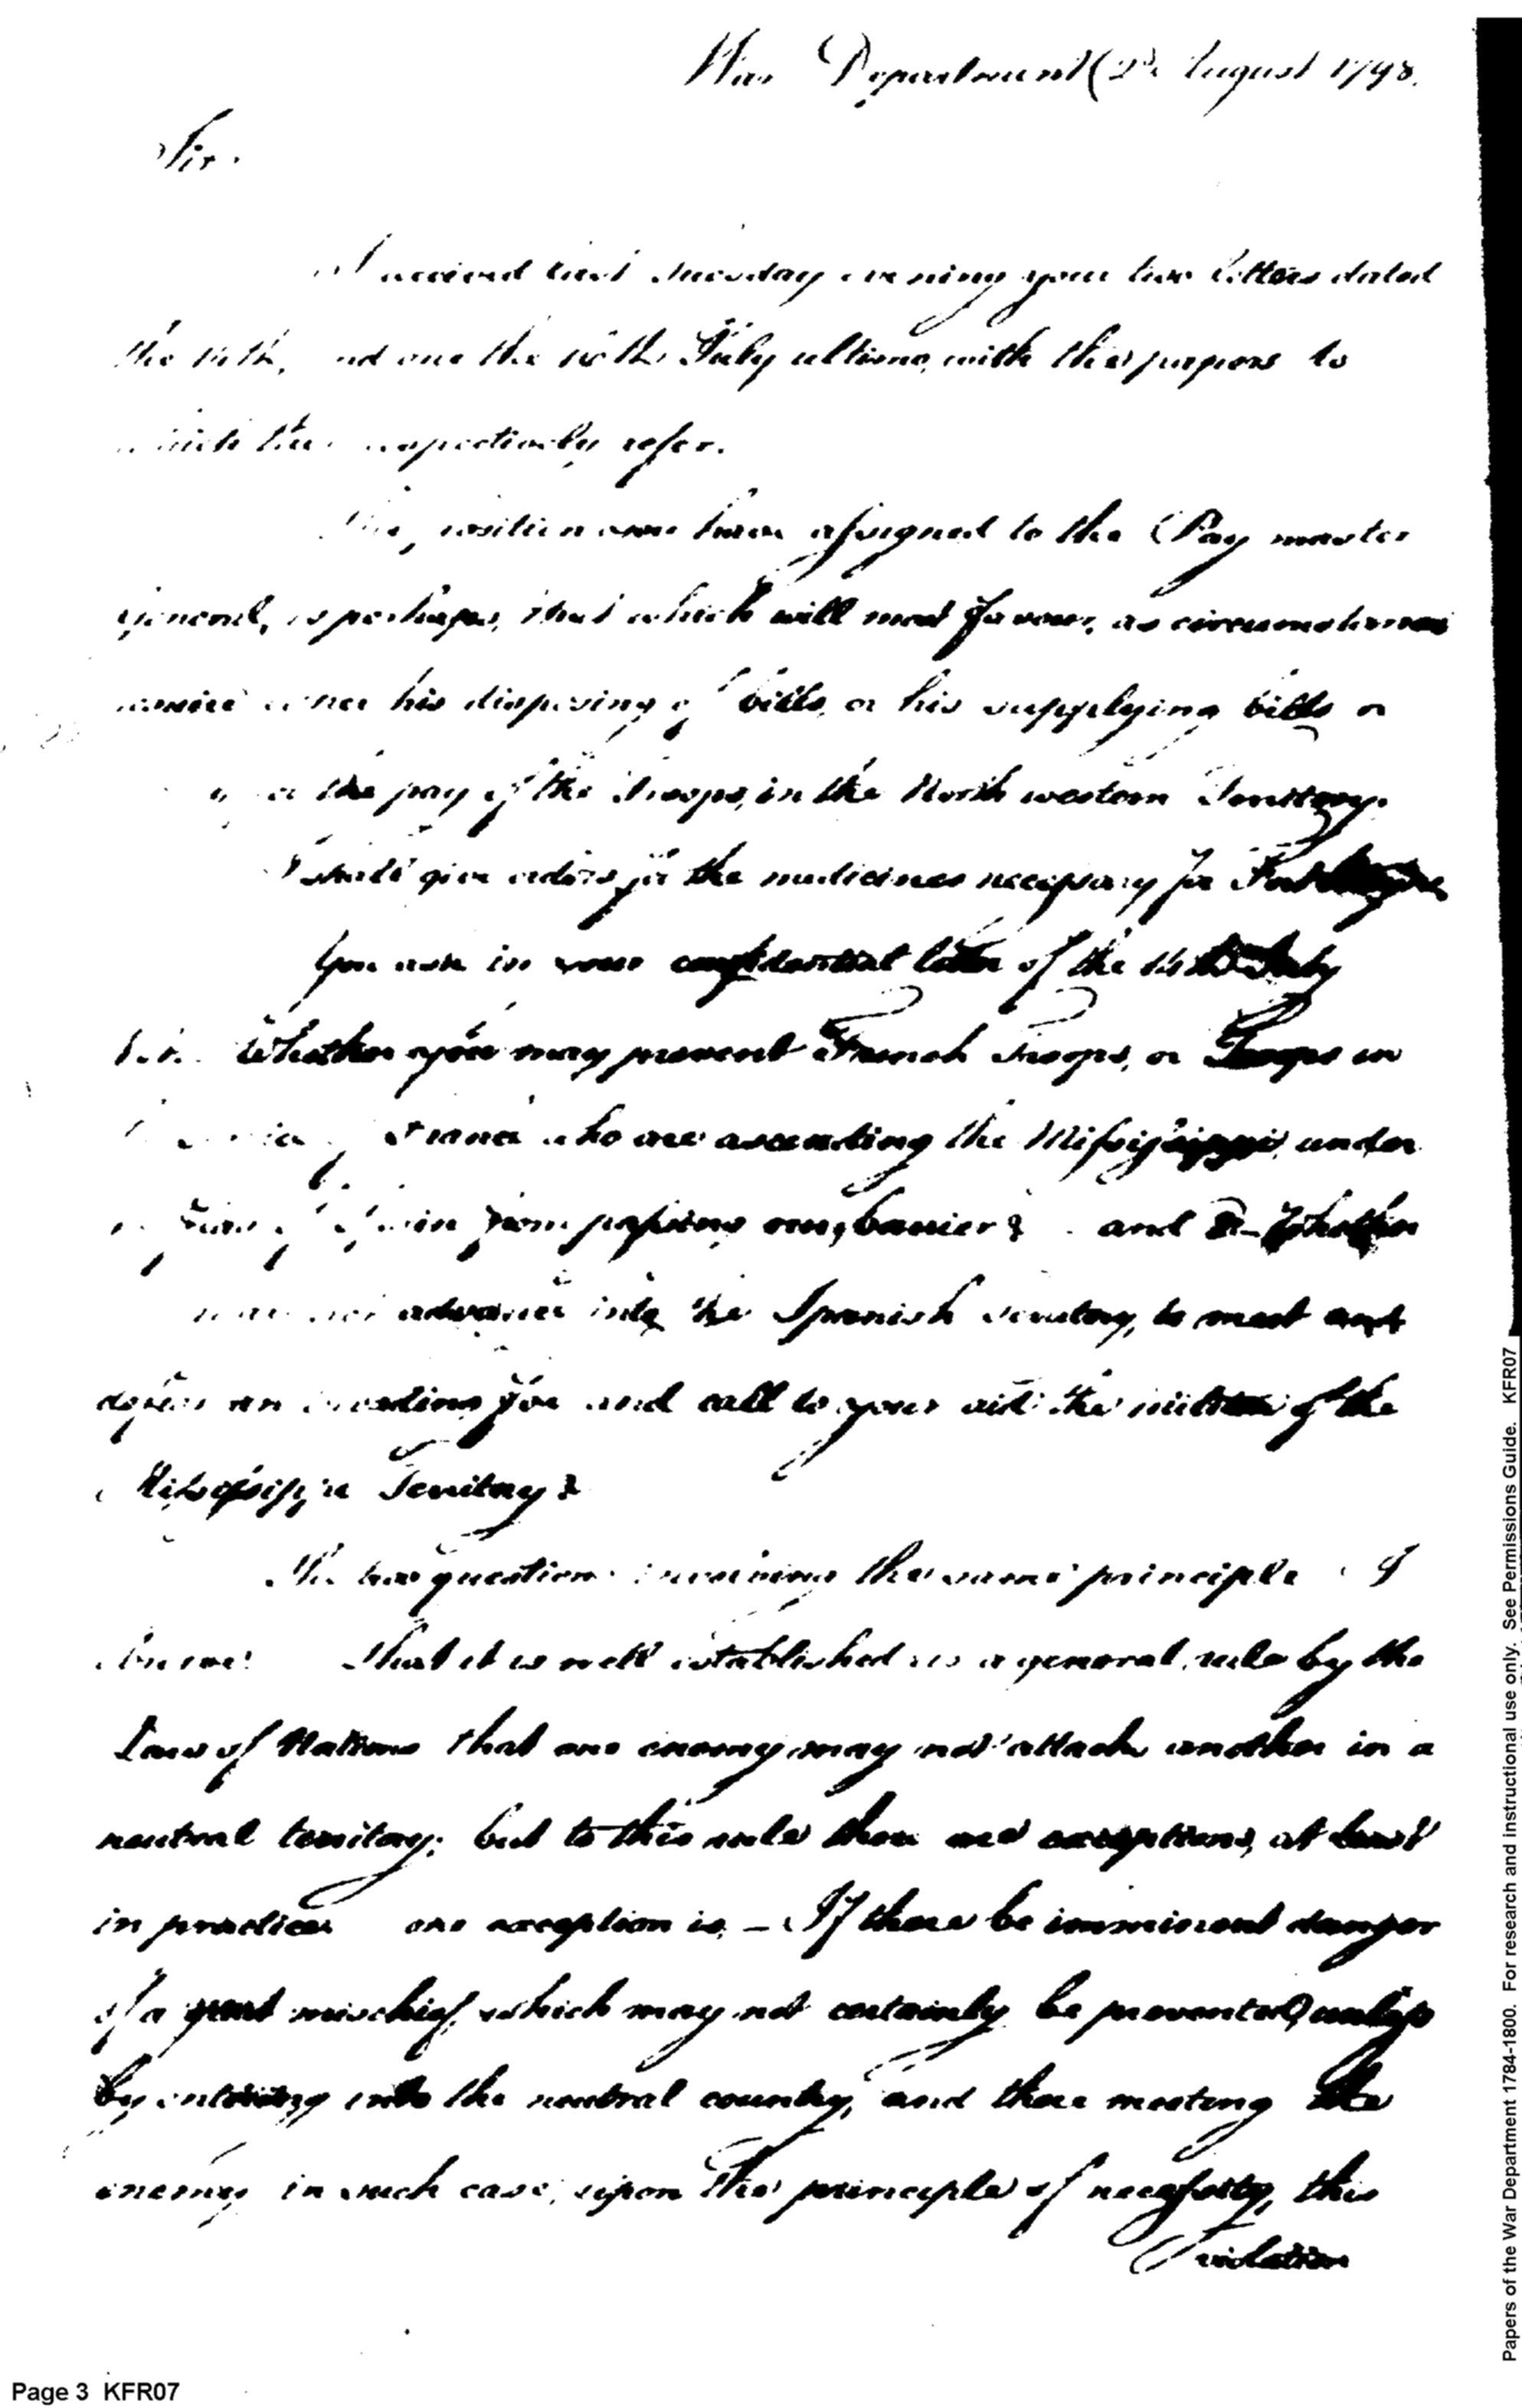 War Department 2d. August 1798.
Sir.
I received last Tuesday evening your two letters dated
the 14th, and one the 16th July ultimo, with the papers to
which they respectively refer.
The position you have assigned to the Pay master
general, is perhaps, that which will most favour, as circumstances
require either his disposing of bills, or his supplying bills or
the pay of the Troops, in the North western Territory.
I shall give orders for the medicines necessary for Fort
You ask in your confidential letter of the 14th July
1st. Whether you may prevent French Troops, or Troops in
France who are ascending the Missisippi, under
from passing our barrier? and 2. Whether
advance into the Spanish Territory, to meet and
oppose an invading foe and call to your aid the militia of the
Missisippi Territory?
The two questions involving the same principle I
answer. That it is well established as a general rule by the
Laws of Nations that one enemy may not attack another in a
neutral territory; but to this rule there are exceptions, at least
in practice one exception is, – If there be imminent danger
of a great mischief, which may not certainly be prevented, unless
by entering into the neutral country, and there meeting the
enemy in such case, upon the principle of necessity, this
violation
Page 3 KFR07
Papers of the War Department 1784-1800. For research and instructional use only. See Permissions Guide. KFR07